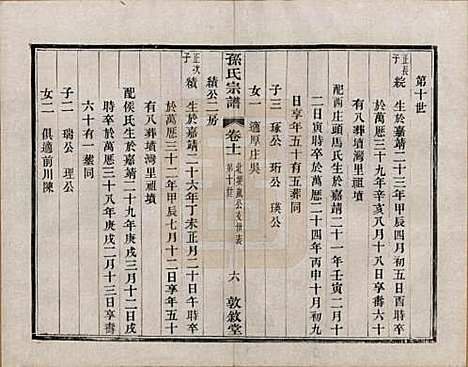 第十世
正長孫 綻 生於嘉靖二十三年甲辰四月初五日酉時卒
於萬厯三十九年辛亥八月十三日享壽六十
有八葬墳灣里祖墳
配西庄頭馬氏生於嘉靖二十一年壬寅二月十
二日寅時卒於萬厯二十四年丙申十月初九
日享年五十有五葬同
子三 㻞公 珩公 瑛公
女一 適厚庄吳
績公二房
孫氏宗譜
卷十一
第十世
六
敦敘堂
正次孫 績 生於嘉靖二十六年丁未正月二十日午時卒
於萬厯三十二年甲辰七月十二日享年五十
有八葬墳灣里祖墳
配侯氏生於嘉靖二十九年庚戌三月十二日戌
時卒於萬厯三十八年庚戌二月十三日享壽
六十有一葬同
子二 瑞公 理公
女二 俱適前川陳